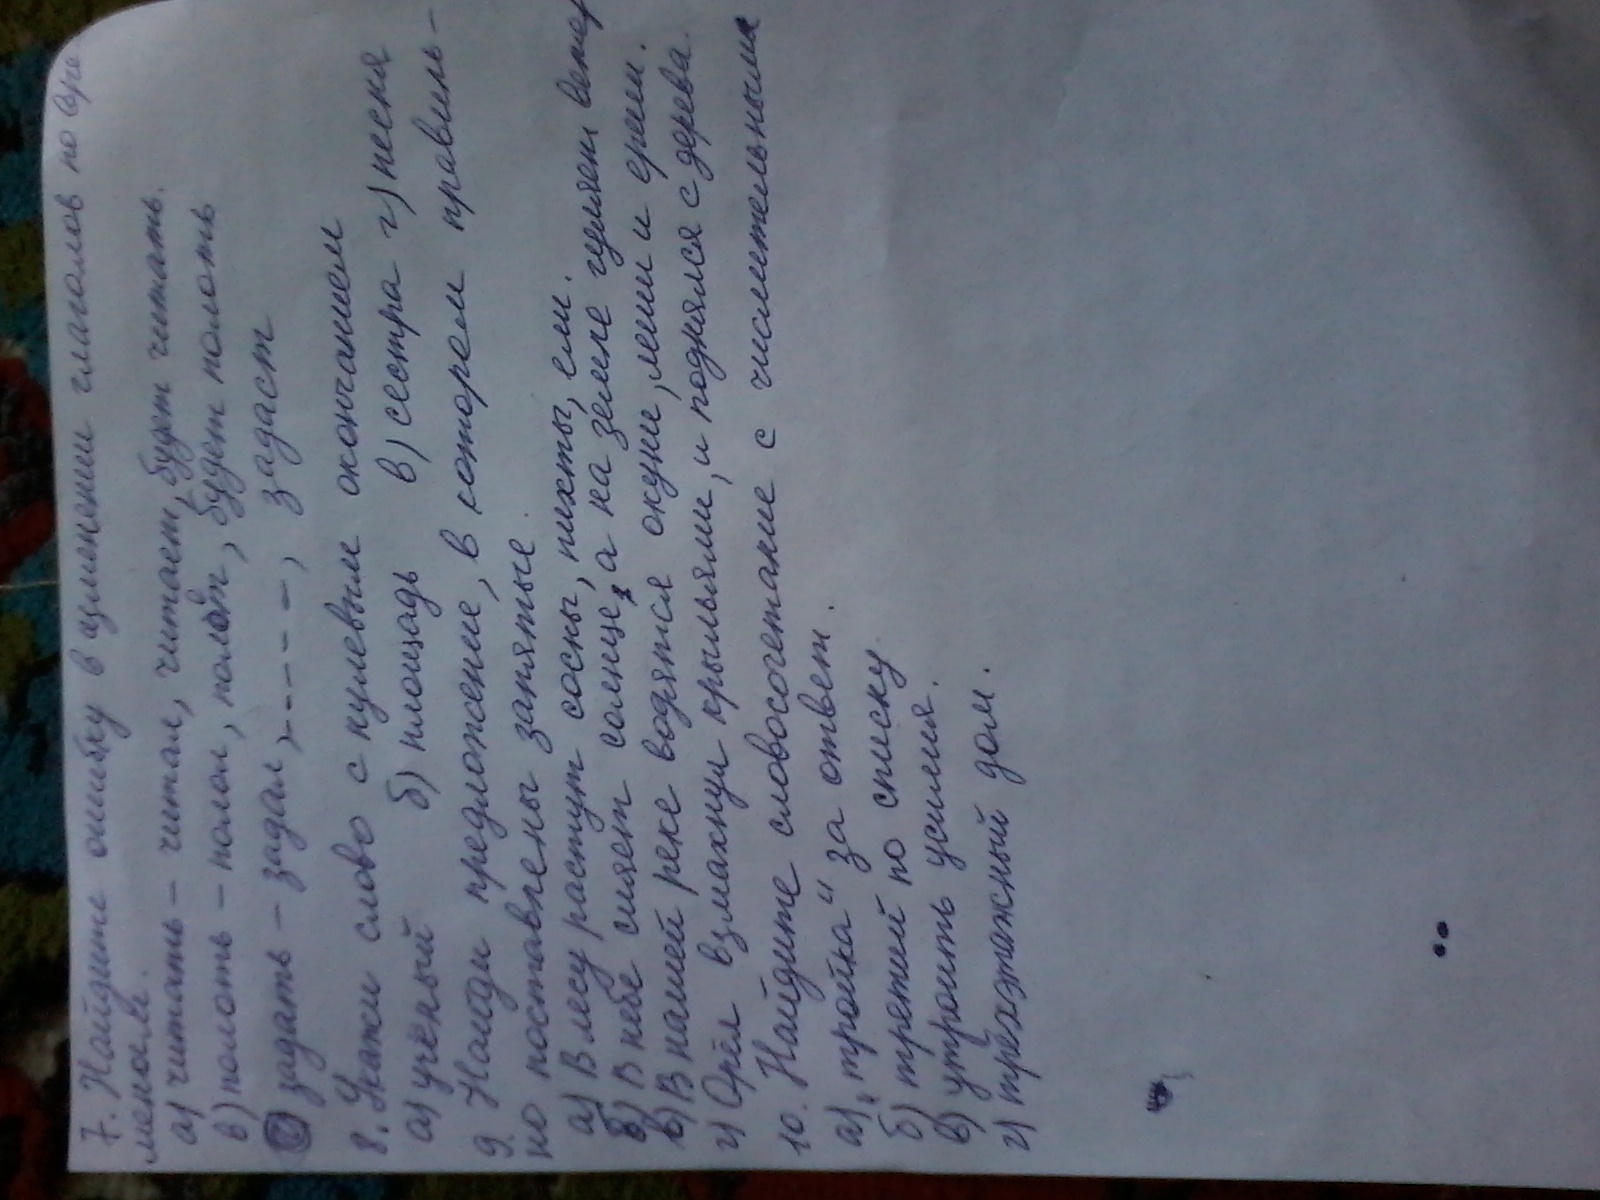 7. Найдите ошибку в изменении глаголов по вре
менем.
а) читать – читал, читает, будет читать.
в) полоть – полол, полет, будет полоть
задать – задал, – – – – –, задаст
8. Укажи слово с нулевым окончанием
а) учёный б) площадь в) сестра г) песня
9. Найди предложение, в котором правиль-
но поставлены запятые.
а) В лесу растут сосны, пихты, ели.
б) В небе сияет солнце, а на земле гуляет ветер
в) В нашей реке водятся окуни, лещи и ерши.
г) Орёл взмахнул крыльями, и поднялся с дерева.
10. Найдите словосочетание с числительным
а) „тройка" за ответ.
б) третий по списку
в) утроить усилия.
г) трёхэтажный дом.